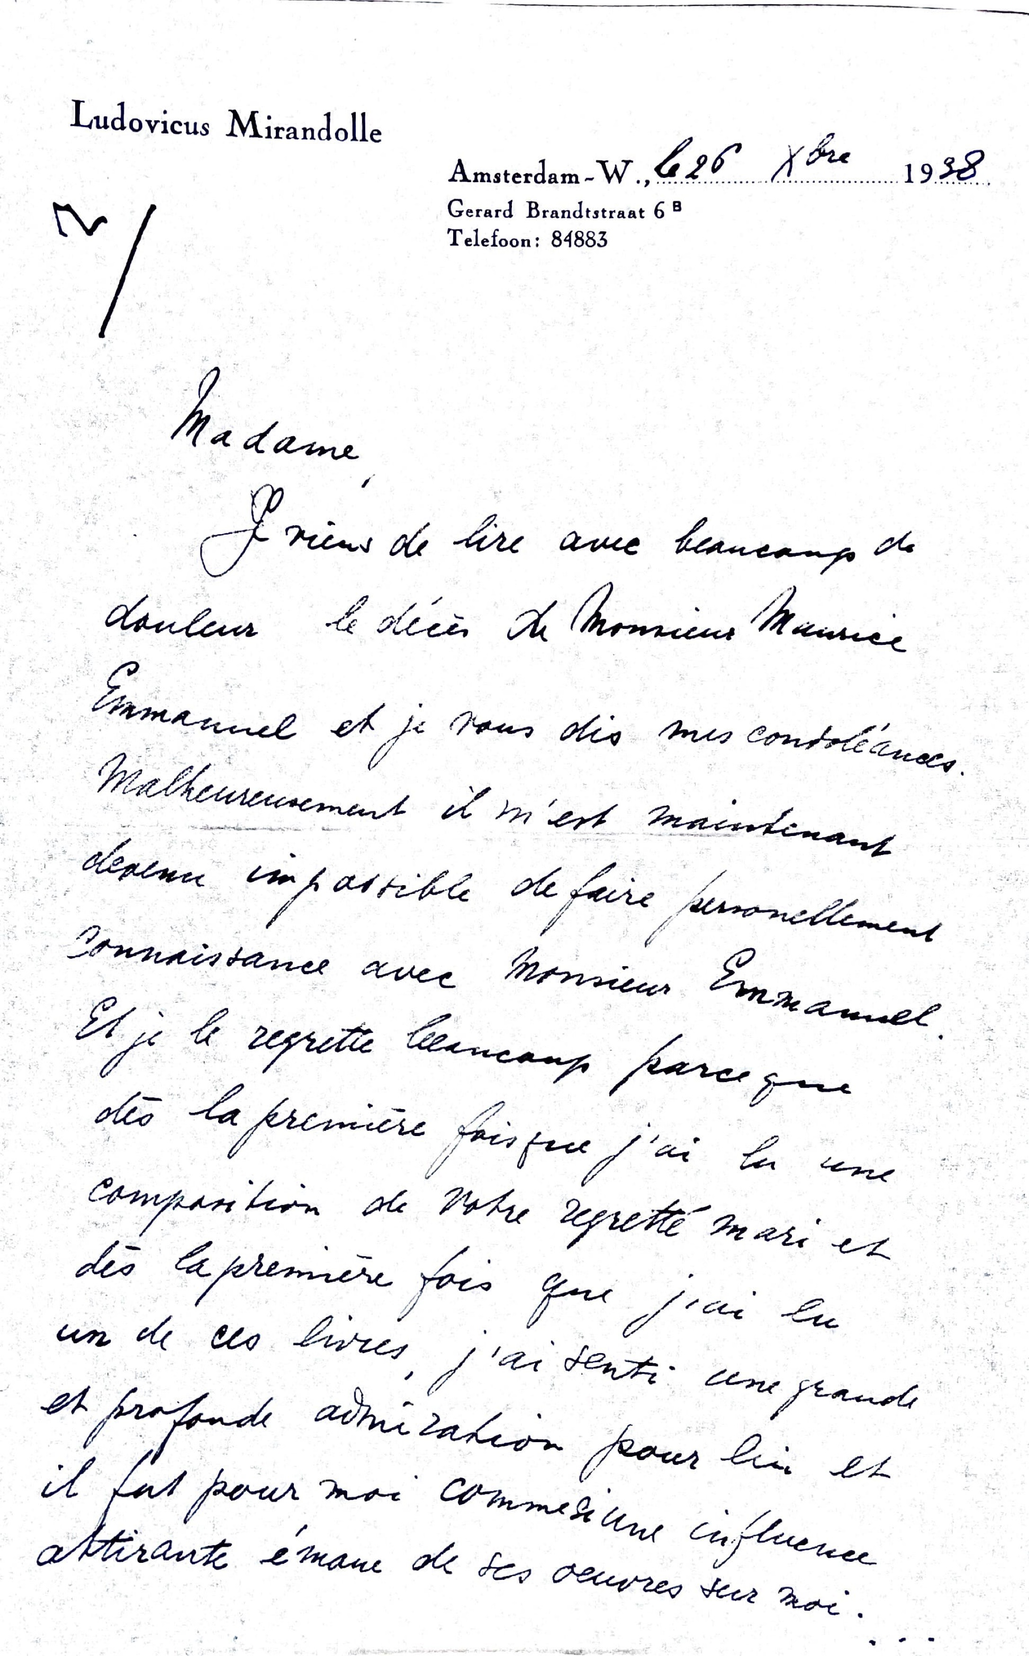 Ludovicus Mirandolle
Amsterdam-W., le 26 Xbre 1938
Gerard Brandtstraat 6 B
Telefoon: 84883
Madame,
Je viens de lire avec beaucoup de
douleur le décès de Monsieur Maurice
Emmanuel et je vous dis mes condoléances.
Malheureusement il m'est maintenant
devenu impossible de faire personellement
connaissance avec Monsieur Emmanuel.
Et je le regrette beaucoup parce que
dès la première fois que j'ai lu une
composition de votre regretté mari et
dès la première fois que j'ai lu
un de ces livres, j'ai senti une grande
et profonde admiration pour lui et
il fut pour moi comme si une influence
attirante émane de ses oeuvres sur moi.
...